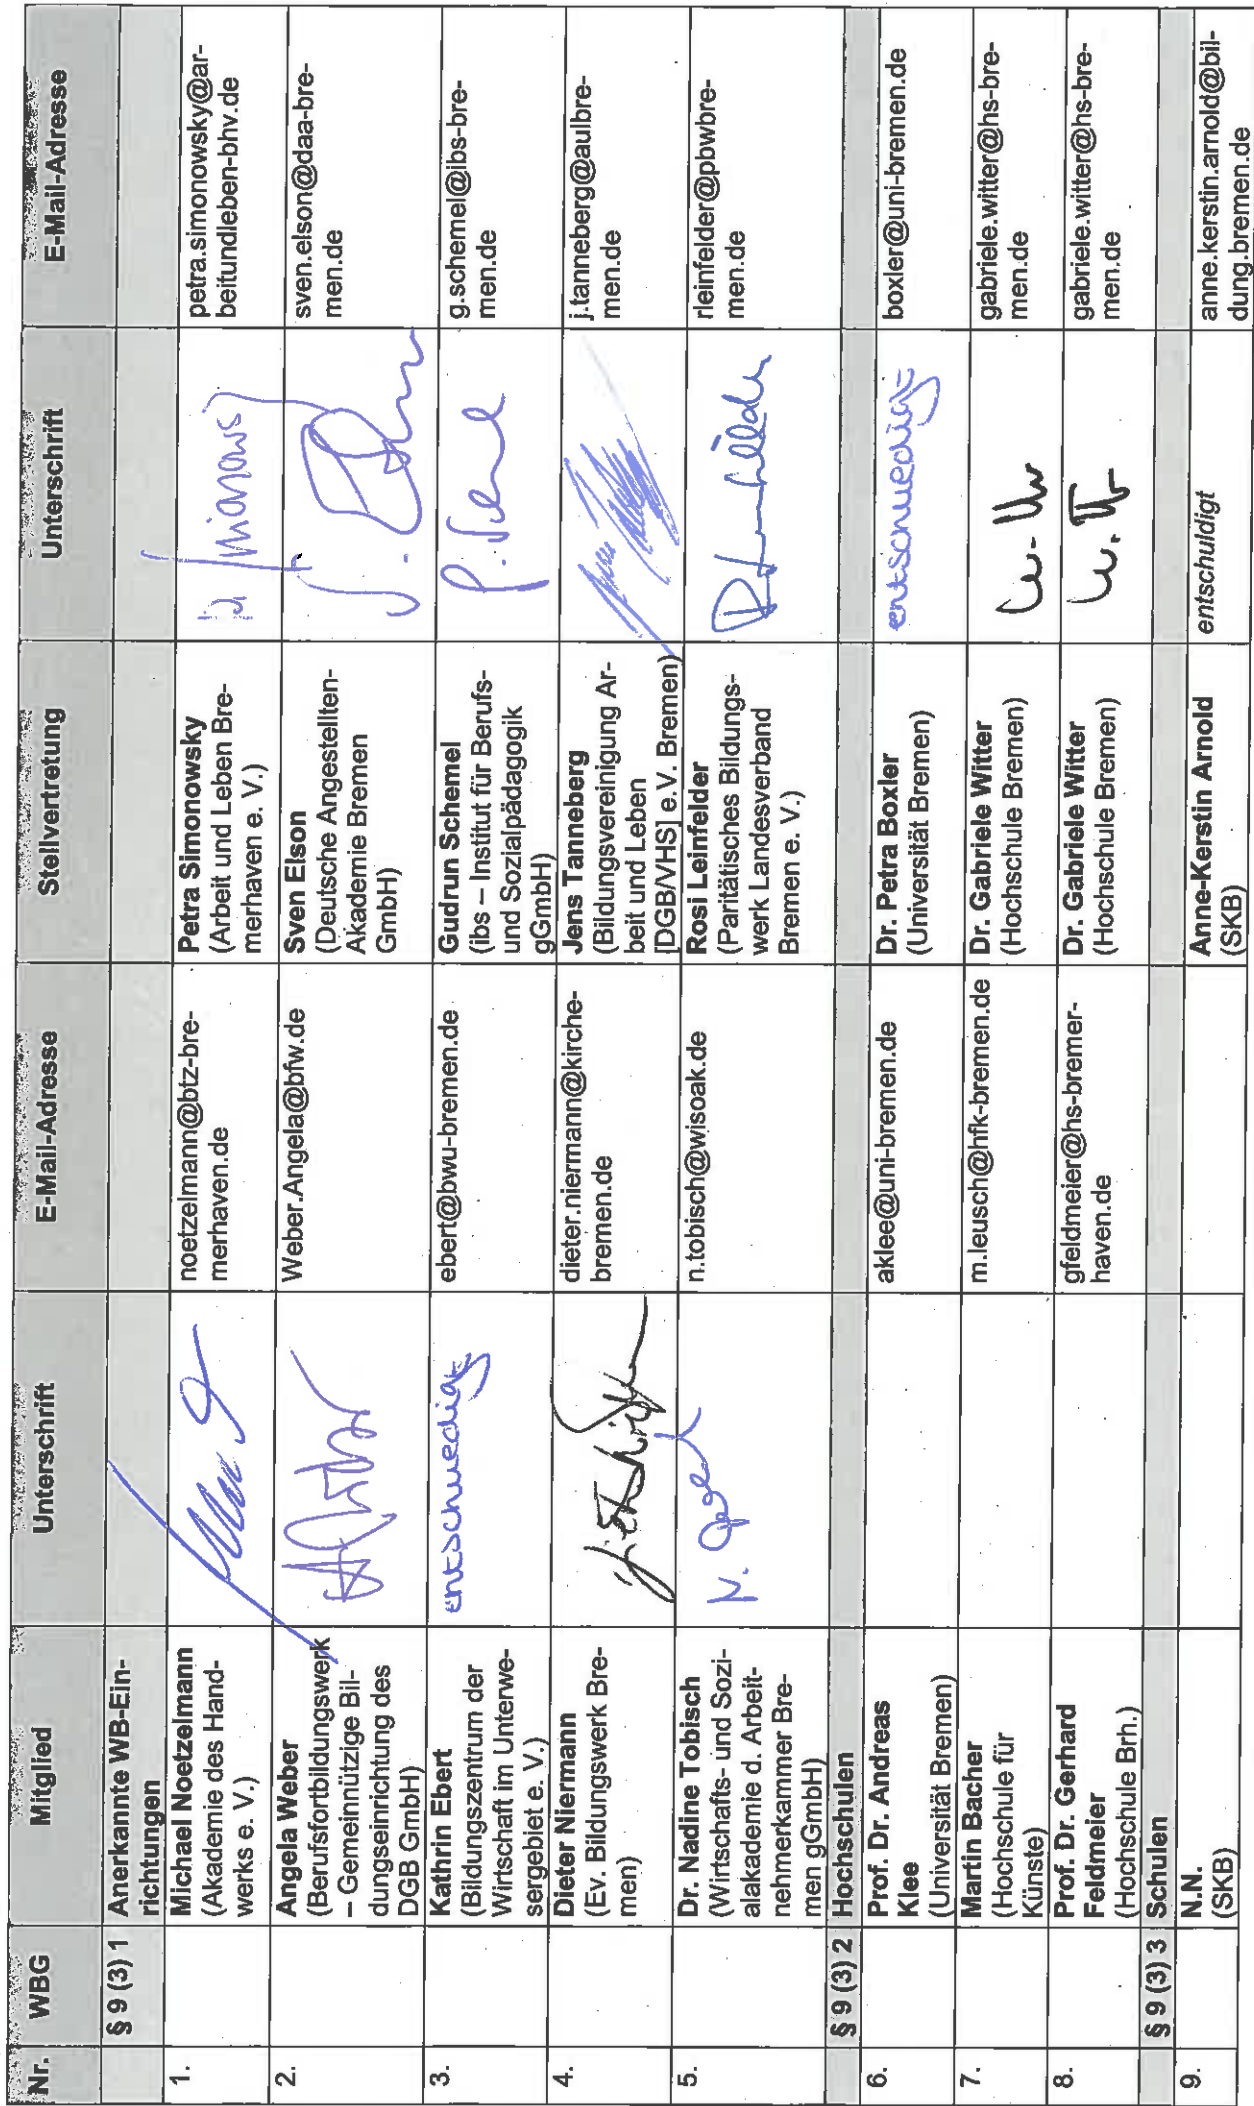 Nr. WBG Mitglied Unterschrift E-Mail-Adresse Stellvertretung Unterschrift E-Mail-Adresse
§ 9 (3) 1 Anerkannte WB-Ein-
richtungen
1. Michael Noetzelmann
(Akademie des Hand-
werks e. V.)
noetzelmann@btz-bre-
merhaven.de
Petra Simonowsky
(Arbeit und Leben Bre-
merhaven e. V.)
petra.simonowsky@ar-
beitundleben-bhv.de
2. Angela Weber
(Berufsfortbildungswerk
– Gemeinnützige Bil-
dungseinrichtung des
DGB GmbH)
Weber.Angela@bfw.de
Sven Elson
(Deutsche Angestellten-
Akademie Bremen
GmbH)
sven.elson@daa-bre-
men.de
3. Kathrin Ebert
(Bildungszentrum der
Wirtschaft im Unterwe-
sergebiet e. V.)
entschuedigt
ebert@bwu-bremen.de
Gudrun Schemel
(ibs – Institut für Berufs-
und Sozialpädagogik
gGmbH)
g.schemel@ibs-bre-
men.de
4. Dieter Niermann
(Ev. Bildungswerk Bre-
men)
dieter.niermann@kirche-
bremen.de
Jens Tanneberg
(Bildungsvereinigung Ar-
beit und Leben
[DGB/VHS] e.V. Bremen)
j.tanneberg@aulbre-
men.de
5. Dr. Nadine Tobisch
(Wirtschafts- und Sozi-
alakademie d. Arbeit-
nehmerkammer Bre-
men gGmbH)
n.tobisch@wisoak.de
Rosi Leinfelder
(Paritätisches Bildungs-
werk Landesverband
Bremen e. V.)
rleinfelder@pbwbre-
men.de
§ 9 (3) 2 Hochschulen
6. Prof. Dr. Andreas
Klee
(Universität Bremen)
aklee@uni-bremen.de
Dr. Petra Boxler
(Universität Bremen)
entschuedigt
boxler@uni-bremen.de
7. Martin Bacher
(Hochschule für
Künste)
m.leusch@hfk-bremen.de
Dr. Gabriele Witter
(Hochschule Bremen)
gabriele.witter@hs-bre-
men.de
8. Prof. Dr. Gerhard
Feldmeier
(Hochschule Brh.)
gfeldmeier@hs-bremer-
haven.de
Dr. Gabriele Witter
(Hochschule Bremen)
gabriele.witter@hs-bre-
men.de
§ 9 (3) 3 Schulen
9. N.N.
(SKB)
Anne-Kerstin Arnold
(SKB)
entschuldigt
anne.kerstin.arnold@bil-
dung.bremen.de